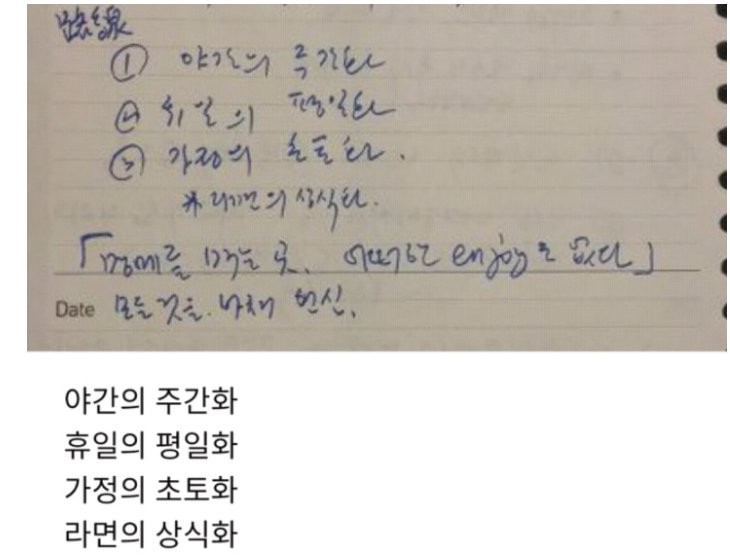 路線
① 야간의 주간화
② 휴일의 평일화
③ 가정의 초토화.
※ 라면의 상식화.
「명예를 먹는 곳. 어떠한 enjoy도 없다」
Date 모든 것을. 바쳐 헌신.
야간의 주간화
휴일의 평일화
가정의 초토화
라면의 상식화